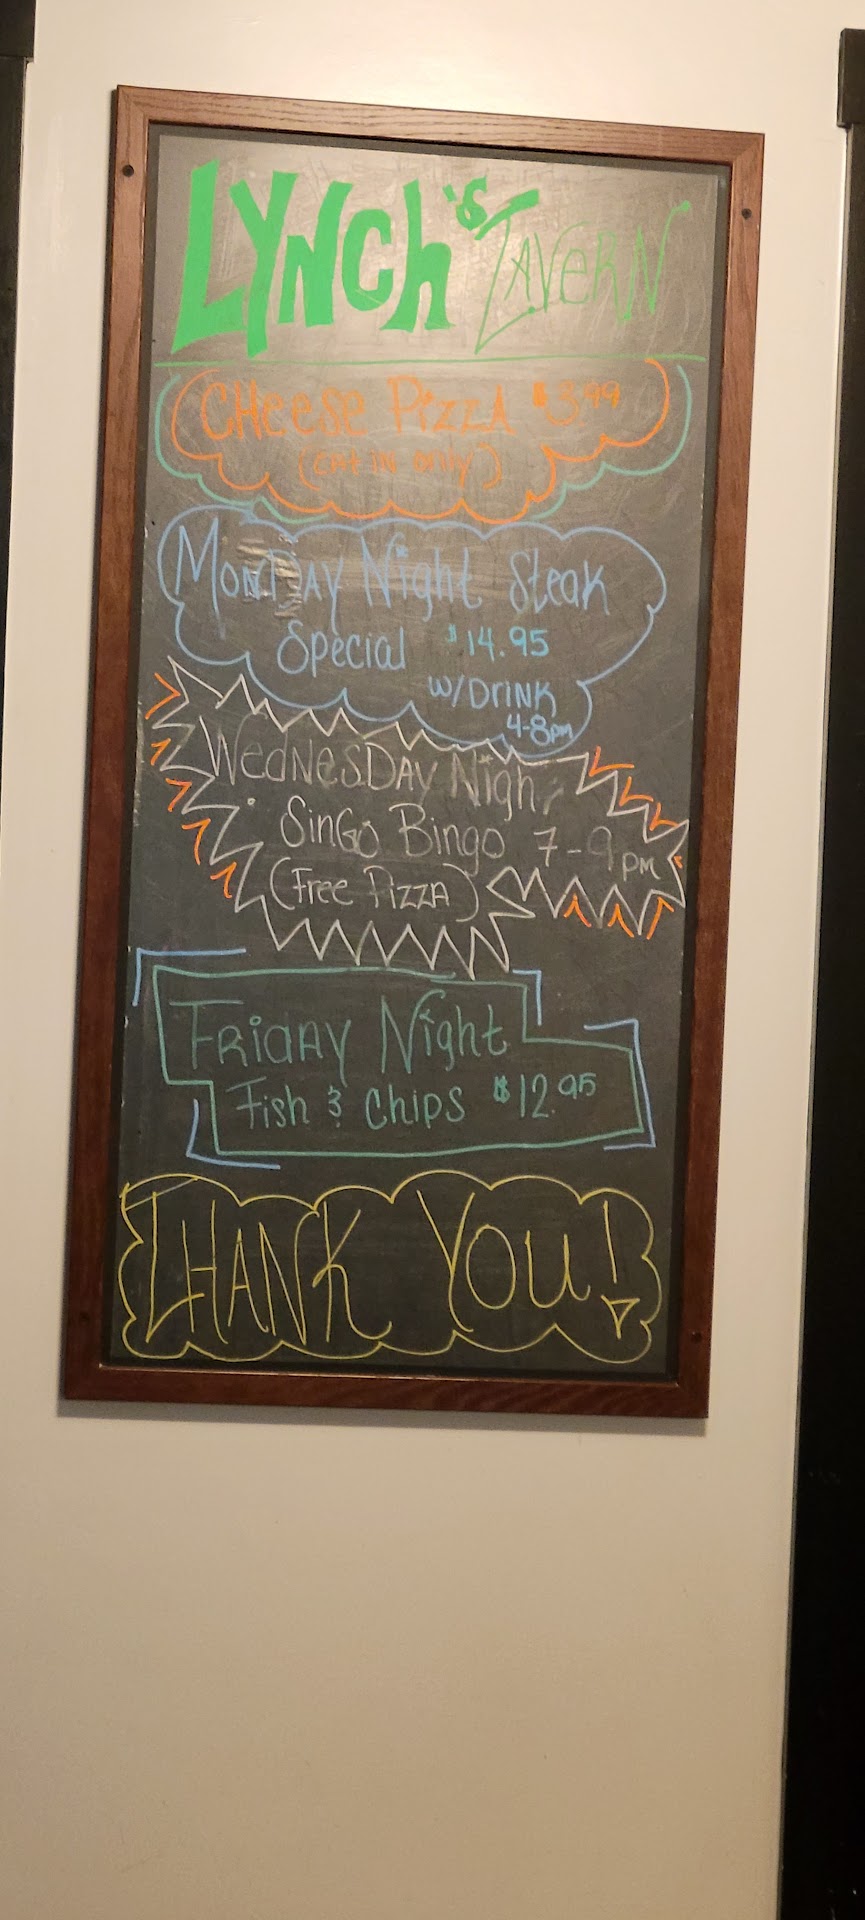 LYNCh's TAVERN
CHeese PizzA $3.99
(eat in only)
MONDAY Night Steak
Special $14.95
w/DrINK
4-8pm
WedNeSDAY Nigh
SinGo Bingo 7-9pm
(Free PizzA)
FRidAY Night
Fish & Chips $12.95
THANK YOU!